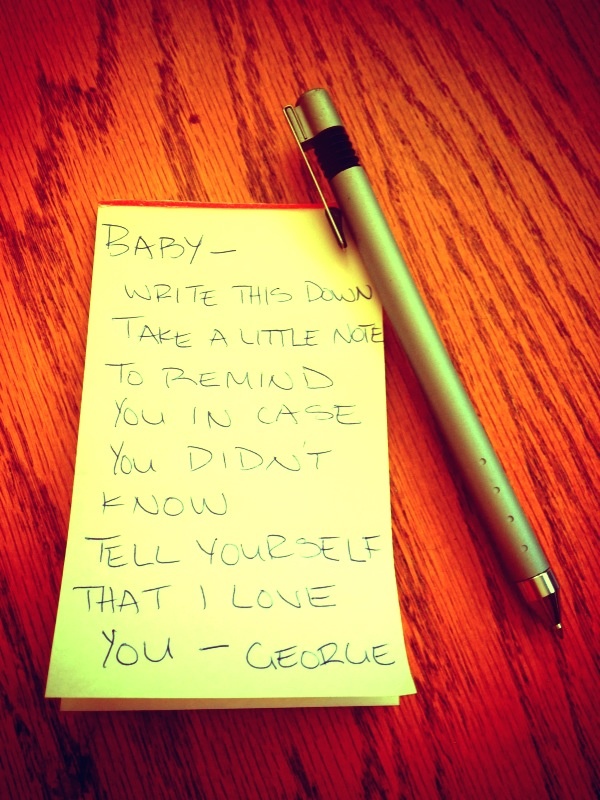 BABY—
WRITE THIS DOWN
TAKE A LITTLE NOTE
TO REMIND
YOU IN CASE
YOU DIDN'T
KNOW
TELL YOURSELF
THAT I LOVE
YOU — GEORGE